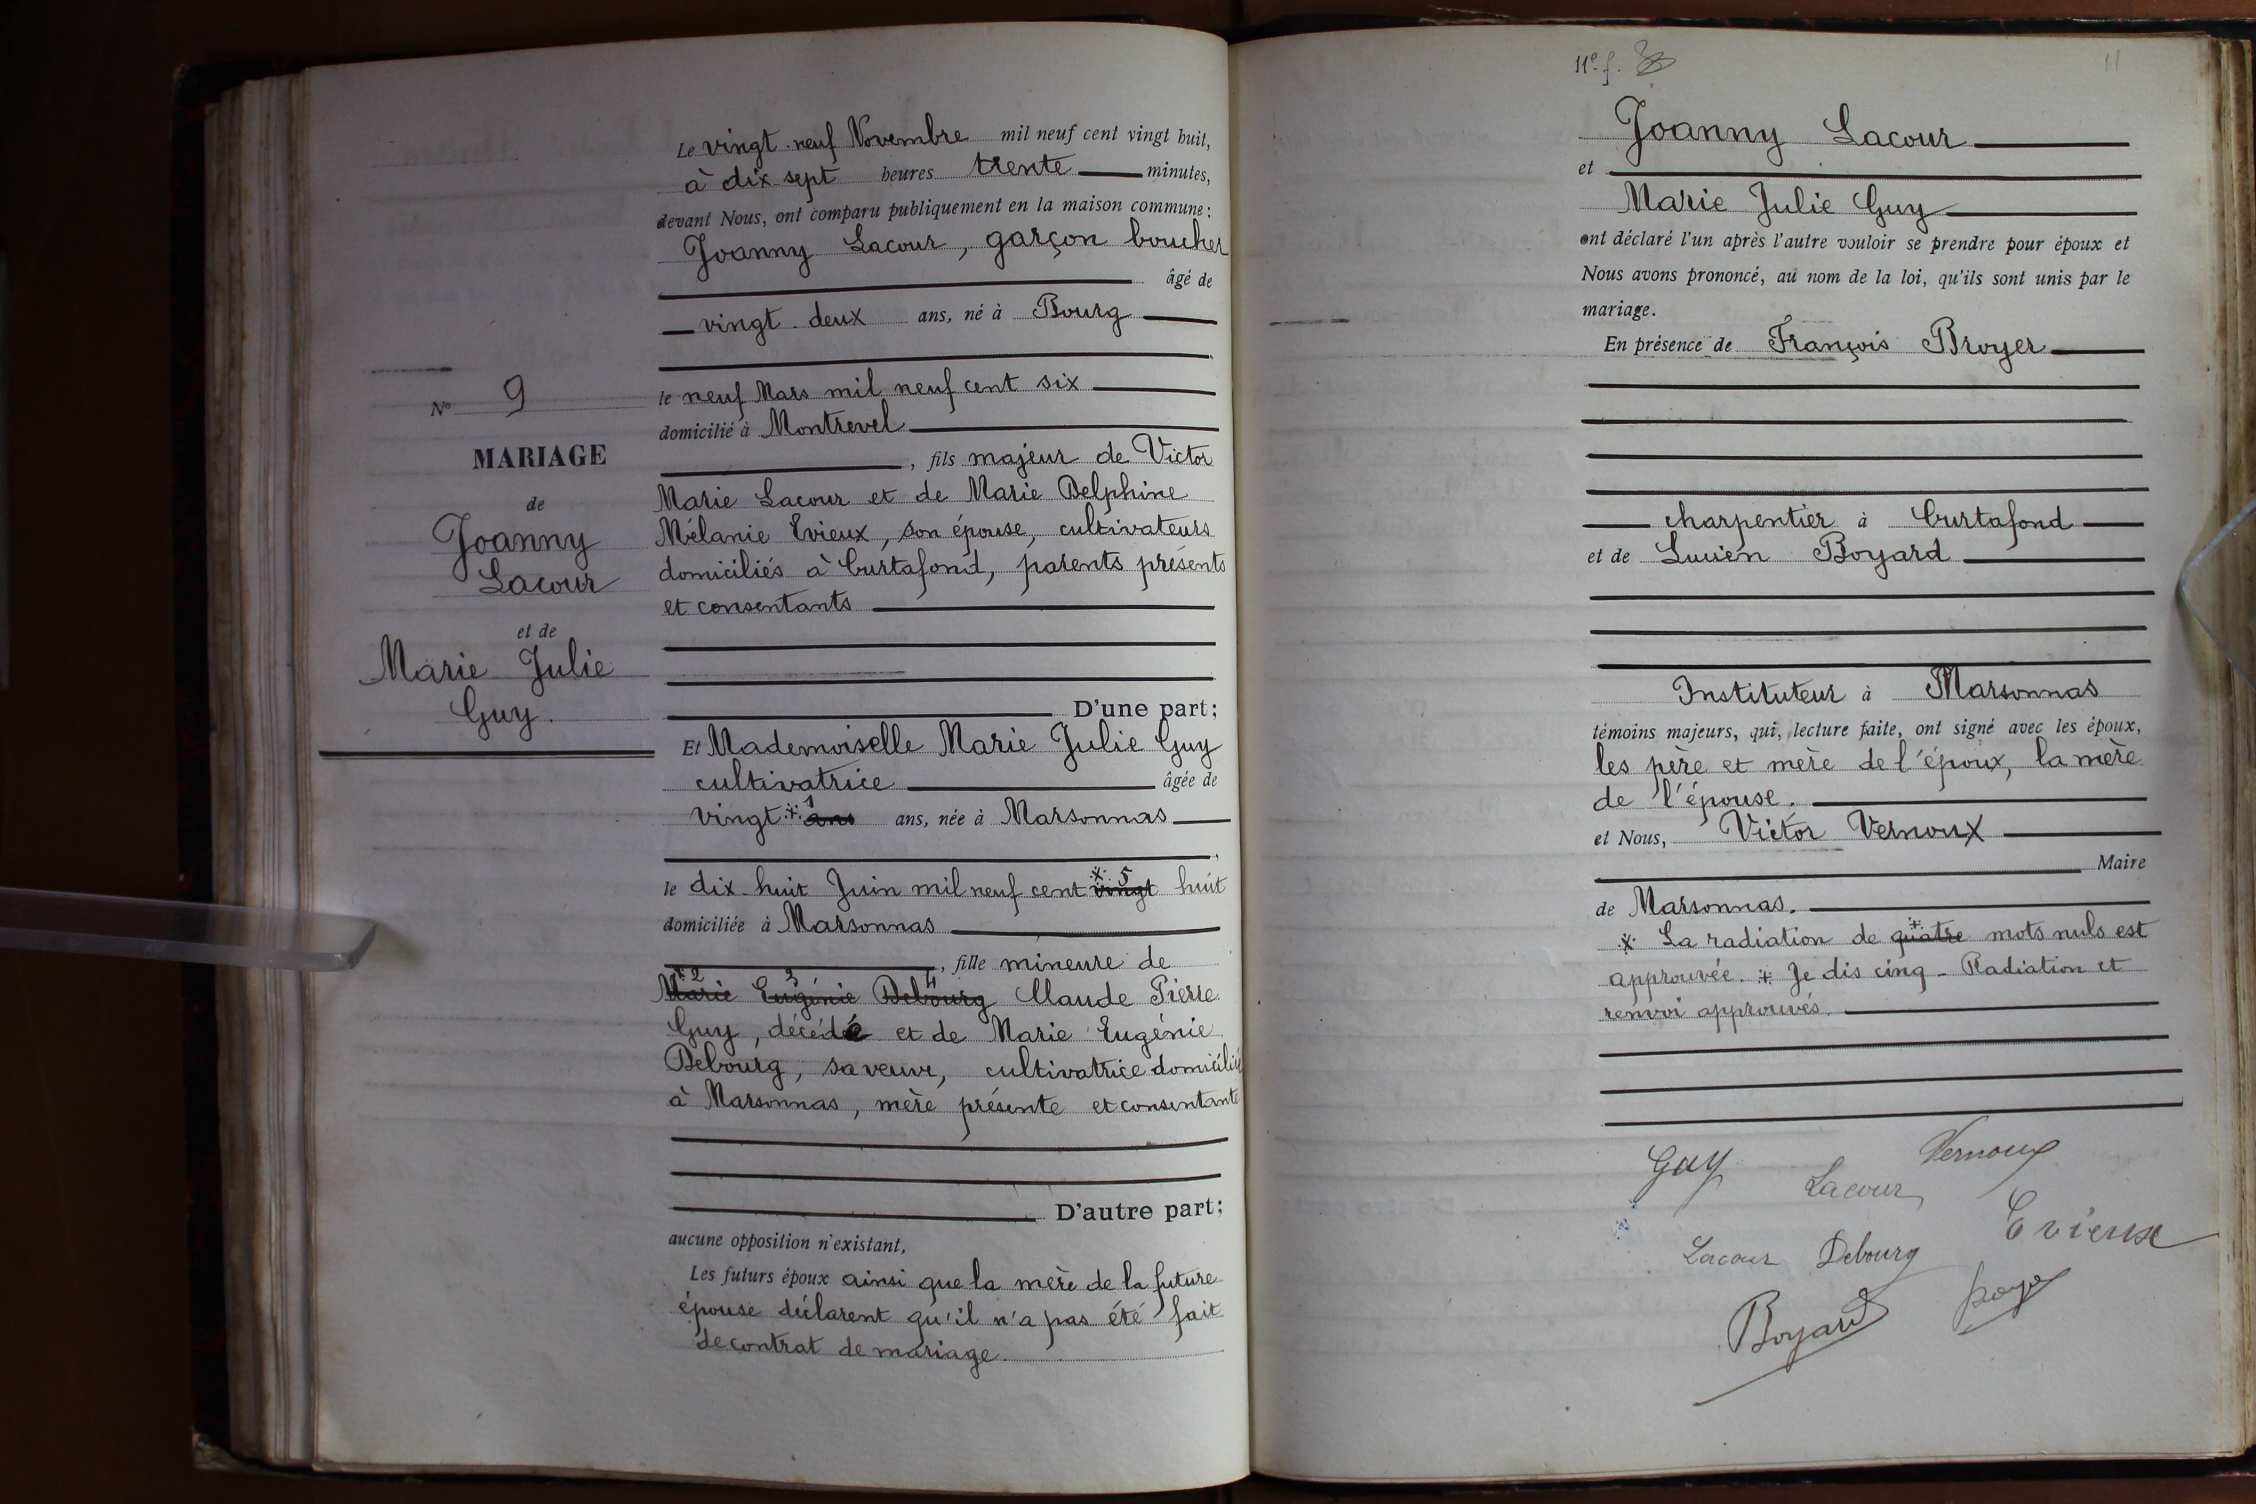 Le vingt-neuf Novembre mil neuf cent vingt huit,
à dix sept heures trente minutes,
devant Nous, ont comparu publiquement en la maison commune :
Joanny Lacour, garçon boucher
âgé de
vingt-deux ans, né à Bourg
le neuf Mars mil neuf cent six
domicilié à Montrevel
, fils majeur de Victor
Marie Lacour et de Marie Delphine
Mélanie Evieux, son épouse, cultivateurs
domiciliés à Curtafond, parents présents
et consentants
D'une part;
Et Mademoiselle Marie Julie Guy
cultivatrice âgée de
vingt * 1 ans ans, née à Marsonnas
le dix-huit Juin mil neuf cent * 5 vingt huit
domiciliée à Marsonnas
, fille mineure de
* 2 3 4
Marie Eugénie Debourg Claude Pierre
Guy, décédé et de Marie Eugénie
Debourg, sa veuve, cultivatrice domiciliée
à Marsonnas, mère présente et consentante
D'autre part;
aucune opposition n'existant,
Les futurs époux ainsi que la mère de la future
épouse déclarent qu'il n'a pas été fait
de contrat de mariage.
No 9
MARIAGE
de
Joanny
Lacour
et de
Marie Julie
Guy.
11e f.
11
Joanny Lacour
et
Marie Julie Guy
ont déclaré l'un après l'autre vouloir se prendre pour époux et
Nous avons prononcé, au nom de la loi, qu'ils sont unis par le
mariage.
En présence de François Broyer
charpentier à Curtafond
et de Lucien Boyard
Instituteur à Marsonnas
témoins majeurs, qui, lecture faite, ont signé avec les époux,
les père et mère de l'époux, la mère
de l'épouse.
et Nous, Victor Vernoux
Maire
de Marsonnas.
* La radiation de + quatre mots nuls est
approuvée. + Je dis cinq - Radiation et
renvoi approuvés.
Guy Vernoux
Lacour
Evieux
Lacour Debourg
Boyard